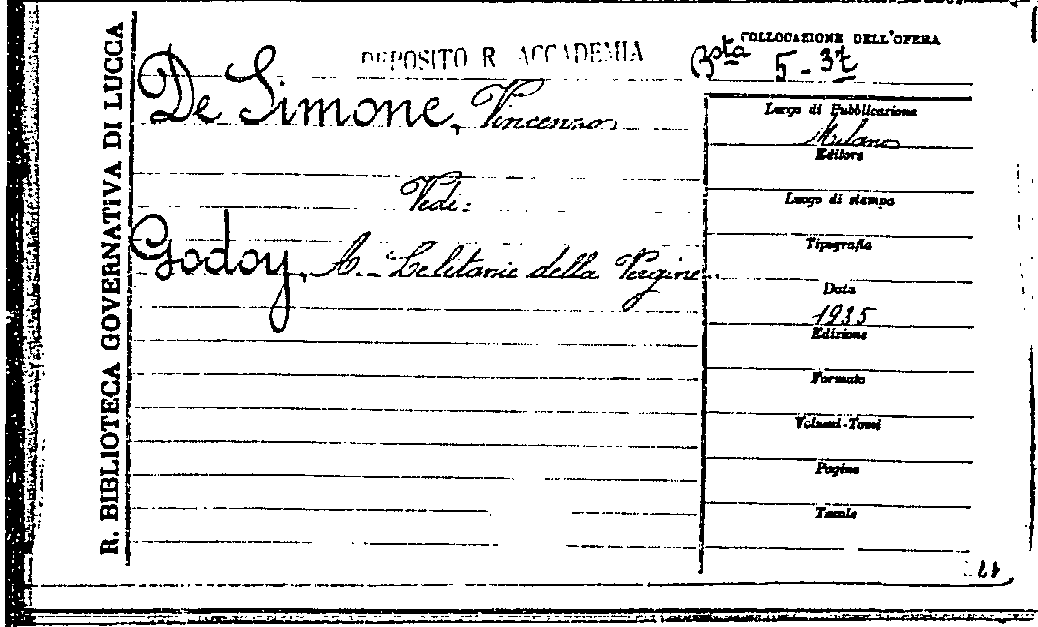 R. BIBLIOTECA GOVERNATIVA DI LUCCA
DEPOSITO R. ACCADEMIA
COLLOCAZIONE DELL'OPERA
Bsta 5-37
De Simone, Vincenzo
Vedi:
Godoy, A. - Le litanie della Vergine.
Luogo di Pubblicazione
Milano
Editore
Luogo di stampa
Tipografia
Data
1935
Edizione
Formato
Volumi-Tomi
Pagine
Tavole